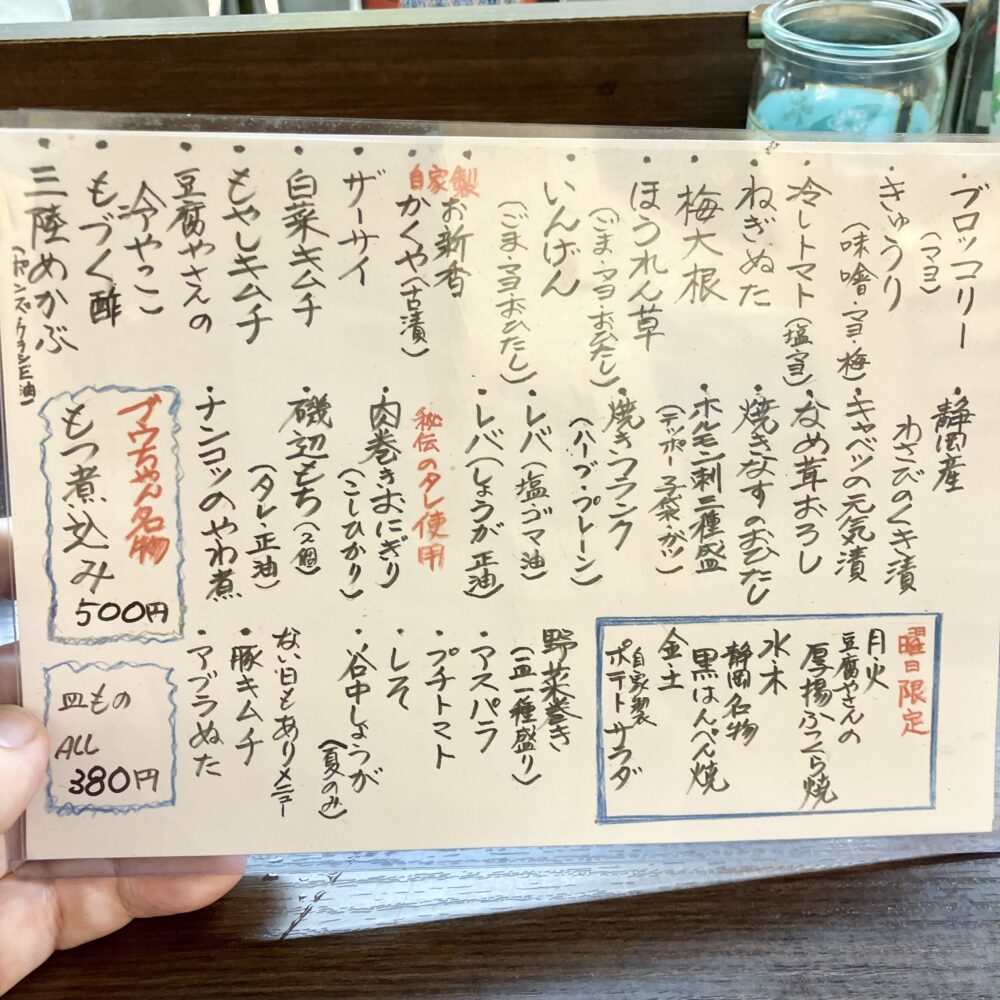 ・ブロッコリー
（マヨ）
・きゅうり
（味噌・マヨ・梅）
・冷しトマト
（塩・マヨ）
・ねぎぬた
・梅大根
・ほうれん草
（ごま・マヨ・おひたし）
・いんげん
（ごま・マヨ・おひたし）
・お新香
自家製
・かくや（古漬）
・ザーサイ
・白菜キムチ
・もやしキムチ
・豆腐やさんの
冷やっこ
・もづく酢
・三陸めかぶ
・静岡産
わさびのくき漬
・キャベツの元気漬
・なめ茸おろし
・焼きなすのおひたし
・ホルモン刺三種盛
（テッポー・子袋・ガツ）
・焼きフランク
（ハーブ・プレーン）
・レバ（塩・ゴマ油）
・レバ（しょうが正油）
秘伝のタレ使用
・肉巻きおにぎり
（こしひかり）
・磯辺もち（2個）
（タレ・正油）
・ナンコツのやわ煮
ブウちゃん名物
もつ煮込み
500円
曜日限定
月火
豆腐やさんの
厚揚ふっくら焼
水木
静岡名物
黒はんぺん焼
金土
自家製
ポテトサラダ
野菜巻き
（一皿一種盛り）
・アスパラ
・プチトマト
・しそ
・谷中しょうが
（夏のみ）
ない日もありメニュー
・豚キムチ
・アブラぬた
皿もの
ALL
380円